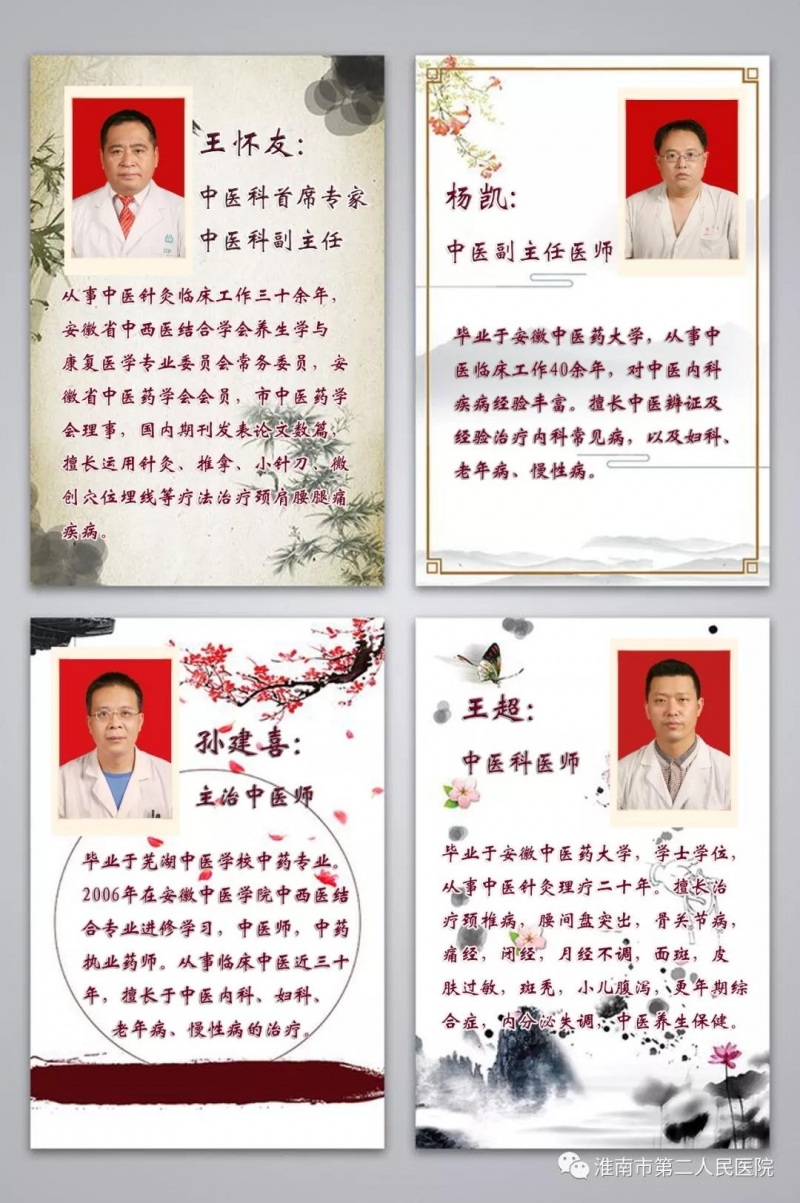 王怀友：
中医科首席专家
中医科副主任
从事中医针灸临床工作三十余年，
安徽省中西医结合学会养生学与
康复医学专业委员会常务委员，安
徽省中医药学会会员，市中医药学
会理事，国内期刊发表论文数篇，
擅长运用针灸、推拿、小针刀、微
创穴位埋线等疗法治疗颈肩腰腿痛
疾病。
杨凯：
中医副主任医师
毕业于安徽中医药大学，从事中
医临床工作40余年，对中医内科
疾病经验丰富。擅长中医辨证及
经验治疗内科常见病，以及妇科、
老年病、慢性病。
孙建喜：
主治中医师
毕业于芜湖中医学校中药专业。
2006年在安徽中医学院中西医结
合专业进修学习，中医师，中药
执业药师。从事临床中医近三十
年，擅长于中医内科、妇科、
老年病、慢性病的治疗。
王超：
中医科医师
毕业于安徽中医药大学，学士学位，
从事中医针灸理疗二十年。擅长治
疗颈椎病，腰间盘突出，骨关节病，
痛经，闭经，月经不调，面斑，皮
肤过敏，斑秃，小儿腹泻，更年期综
合症，内分泌失调，中医养生保健。
淮南市第二人民医院